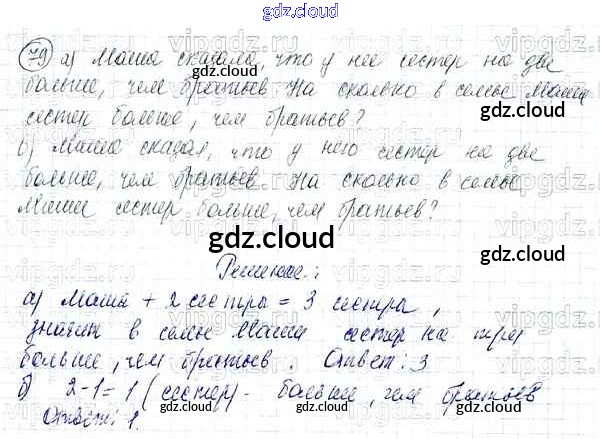 gdz.cloud
79 а) Маша сказала, что у неё сестер на две
больше, чем братьев. На сколько в семье Маши
сестер больше, чем братьев?
б) Миша сказал, что у него сестер на две
больше, чем братьев. На сколько в семье
Миши сестер больше, чем братьев?
gdz.cloud
Решение:
а) Маша + 2 сестры = 3 сестры,
значит в семье Маши сестер на три
больше, чем братьев. Ответ: 3
б) 2-1=1 (сестер) - больше, чем братьев
Ответ: 1.
gdz.cloud